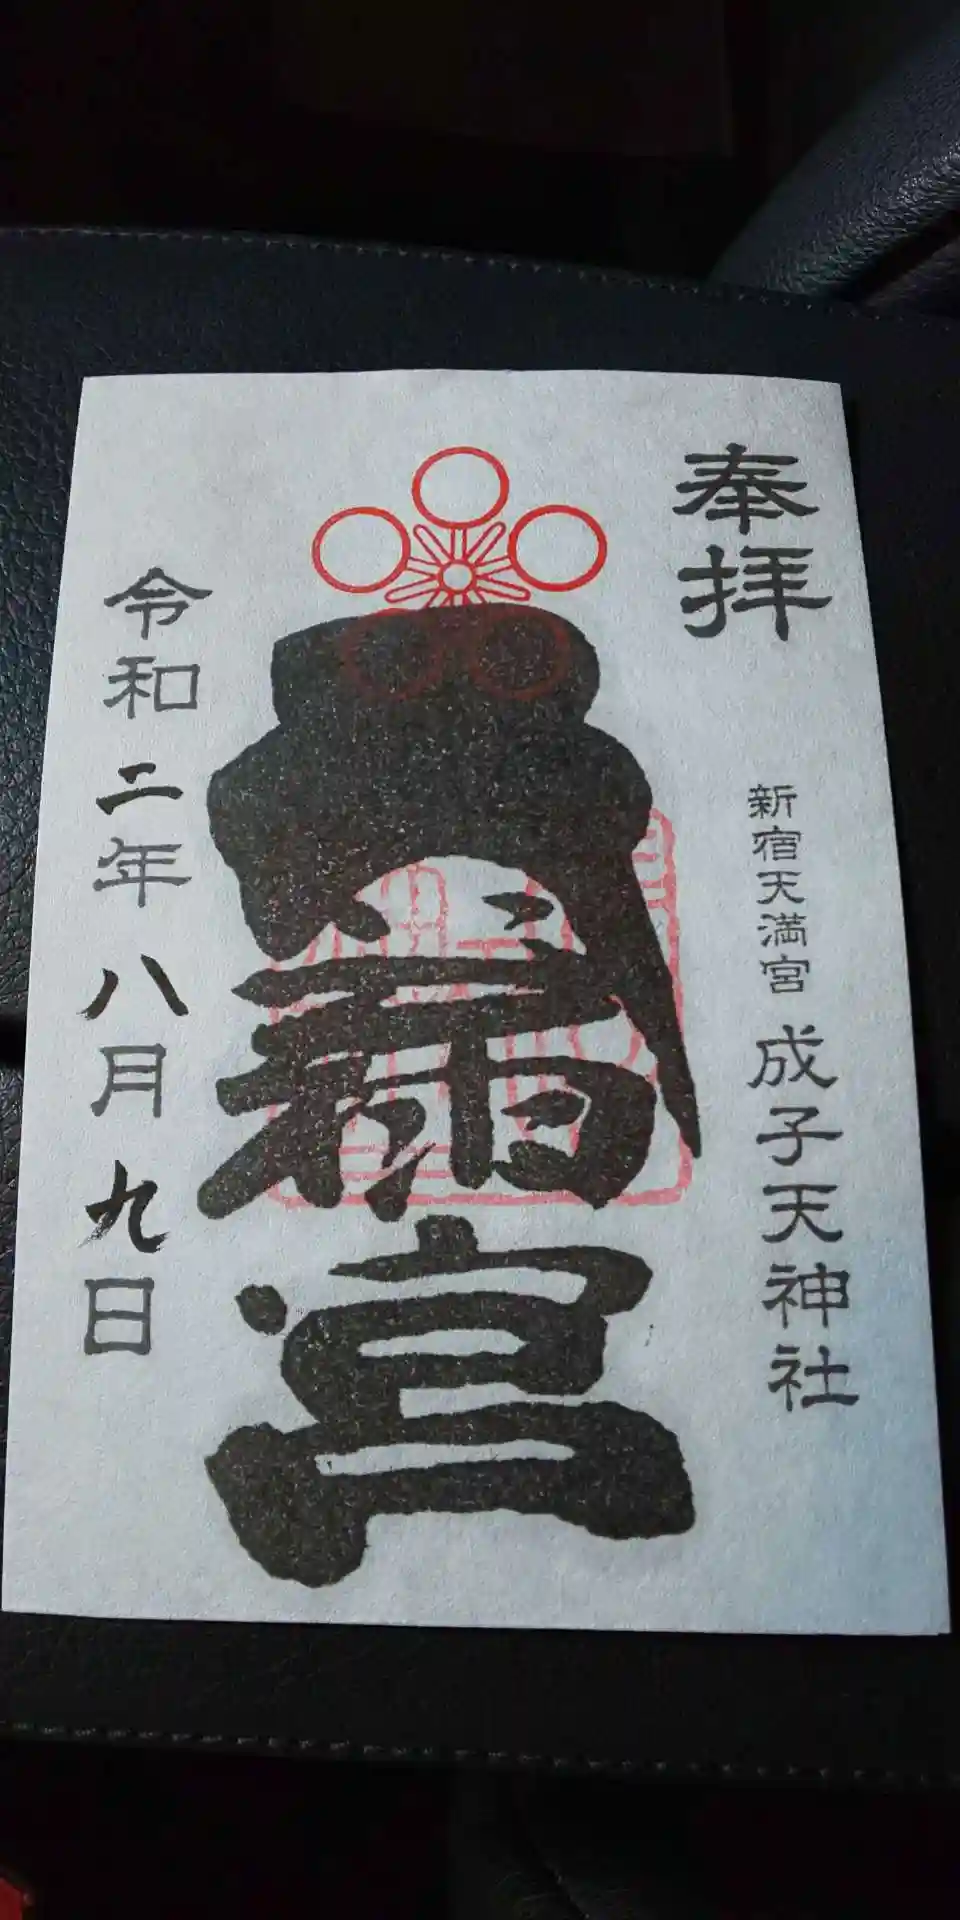 奉拝
新宿天満宮 成子天神社
天満宮
令和二年八月九日